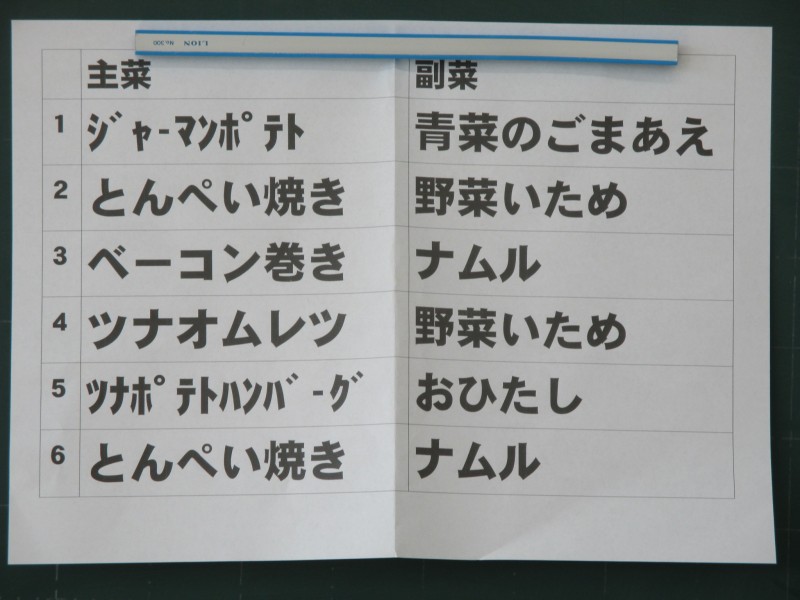 LION No.300
主菜 副菜
1 ｼﾞｬｰﾏﾝﾎﾟﾃﾄ 青菜のごまあえ
2 とんぺい焼き 野菜いため
3 ベーコン巻き ナムル
4 ツナオムレツ 野菜いため
5 ﾂﾅﾎﾟﾃﾄﾊﾝﾊﾞｰｸﾞ おひたし
6 とんぺい焼き ナムル